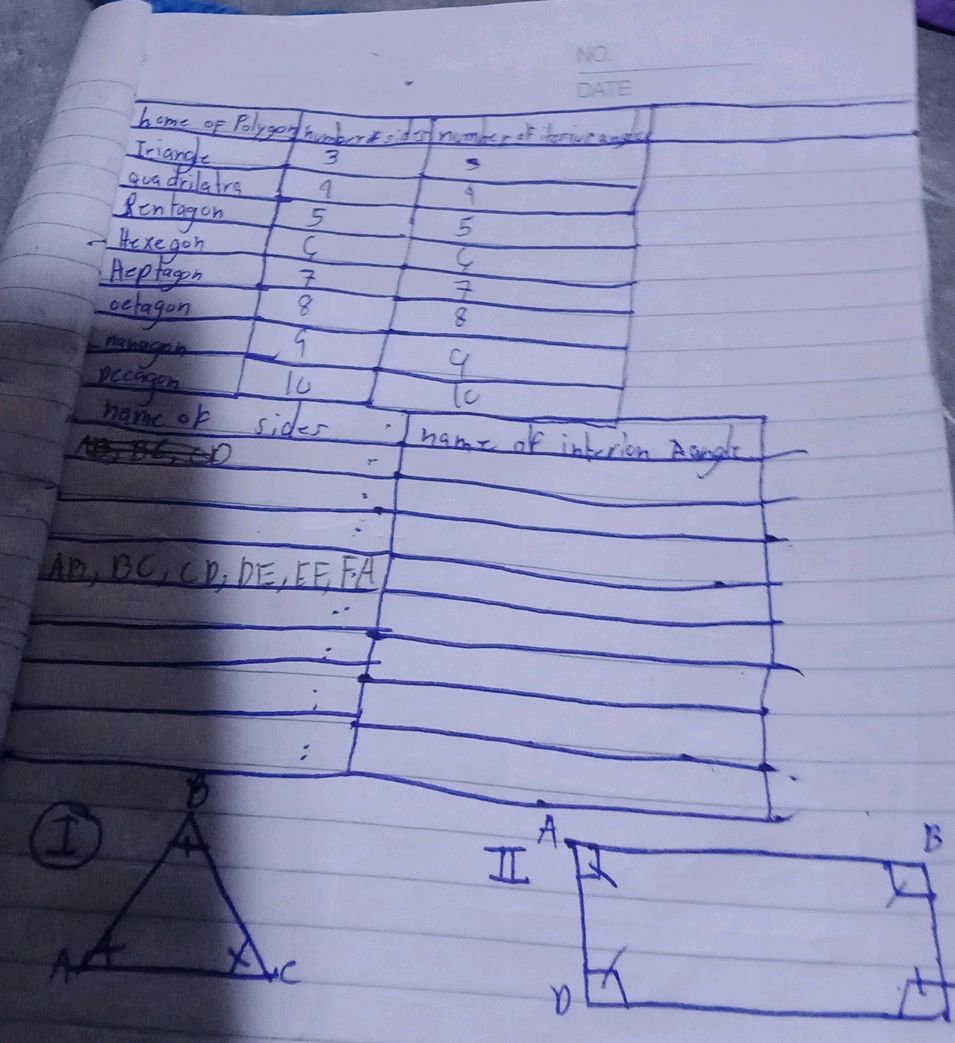 NO.
DATE
name of Polygon number of sides number of iterior angle
Triangle 3 3
quadrilatra 4 4
Pentagon 5 5
Hexegon 6 6
Heptagon 7 7
octagon 8 8
nanagon 9 9
Decagon 10 10
name of sides name of interion Aangle
AB, BC, CD
AB, BC, CD, DE, EF, FA
I B A C
II A B D